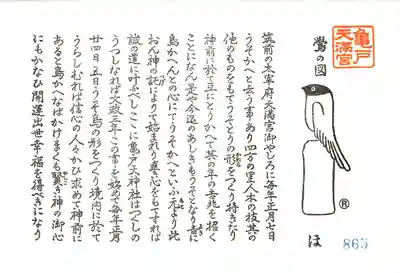 亀戸
天満宮
鷽の図
®
ほ
865
筑前の太宰府天満宮御やしろに毎年正月七日
うそかへと云う事あり四方の里人木の枝其の
他のものをもてうそとりの形をつくり持きたり
神前に於て互にとりかへて其の年の吉兆を招く
ことになん是や今迄のあしきもうそとなり吉に
鳥かへんとの心にてうそかへといふ元より此
おん神の託によりて始り 真心をもてすれば
誠の道に叶ふべしここに亀戸天神社はつくしの
うつしなれば文政三年この を始めて毎年正月
廿四日五日うそ鳥の形をつくり境内に於て
うらしむれば信心の人々かひ求めて神前に
あると鳥かへなばかけまくも賢き神の御心
にもかなひ開運出世幸福を得べきになり